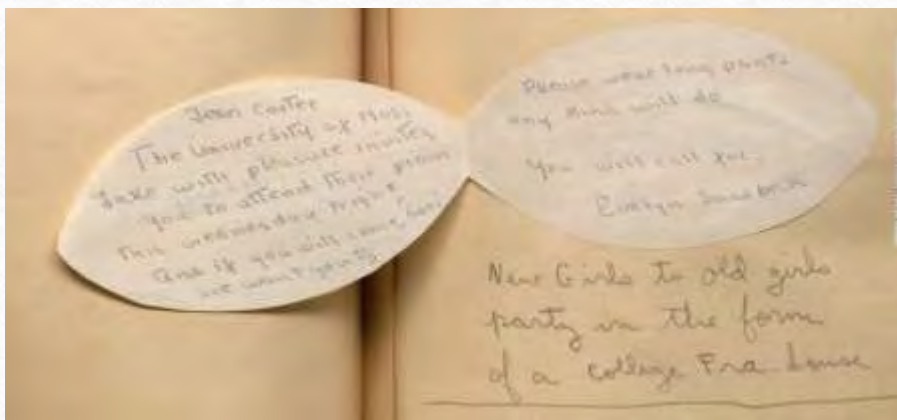 Jean Carter
The University of Moss
Lake with pleasure invites
you to attend their prom
this wednesday night
and if you will come here
we want you to
Please wear long pants
any kind will do
you will call for
Evelyn
New Girls to old girls
party in the form
of a college Fra house